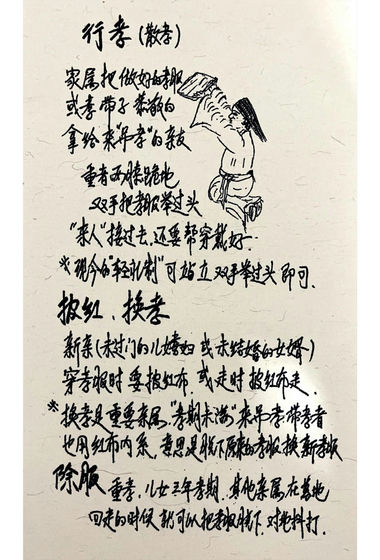 行孝(散孝)
家属把做好的孝服
或孝带子恭敬的
拿给来"吊孝"的亲友
重者两膝跪地
双手把孝服举过头
"来人"接过去,还要帮穿戴好
*现今的"轻礼制"可站立双手举过头即可.
披红、换孝
新亲(未过门的儿媳妇或未结婚的女婿)
穿孝服时要披红布,或走时披红布走.
*换孝是重要亲属"孝期未满"来吊孝带孝者
也用红布内系,意思是脱下原来的孝服换新孝服
除服 重孝,儿女三年孝期.其他亲属在墓地
回走的时候就可以把孝服脱下.对地抖打.